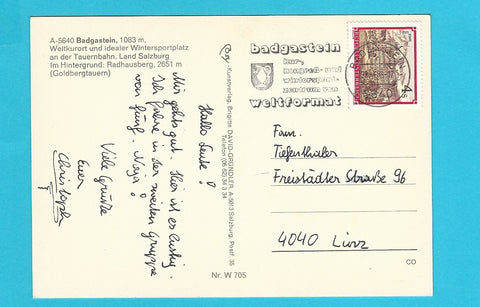 A-5640 Badgastein, 1083 m,
Weltkurort und idealer Wintersportplatz
an der Tauernbahn. Land Salzburg
Im Hintergrund: Radhausberg, 2651 m
(Goldbergtauern)
Hallo Leute!
Mir geht's gut. Hier ist es lustig.
Ich fahre in der zweiten Gruppe
von fünf. Naja!
Viele Grüße
Euer
Christoph
Cosy-Kunstverlag, Brigitte DAVID-GRÜNDLER, A-5013 Salzburg, Postf. 35
Nr. W 705
badgastein
kur,
kongreß- und
wintersport-
zentrum von
weltformat
Fam.
Tiefenthaler
Freistädter Straße 96
4040 Linz
CO